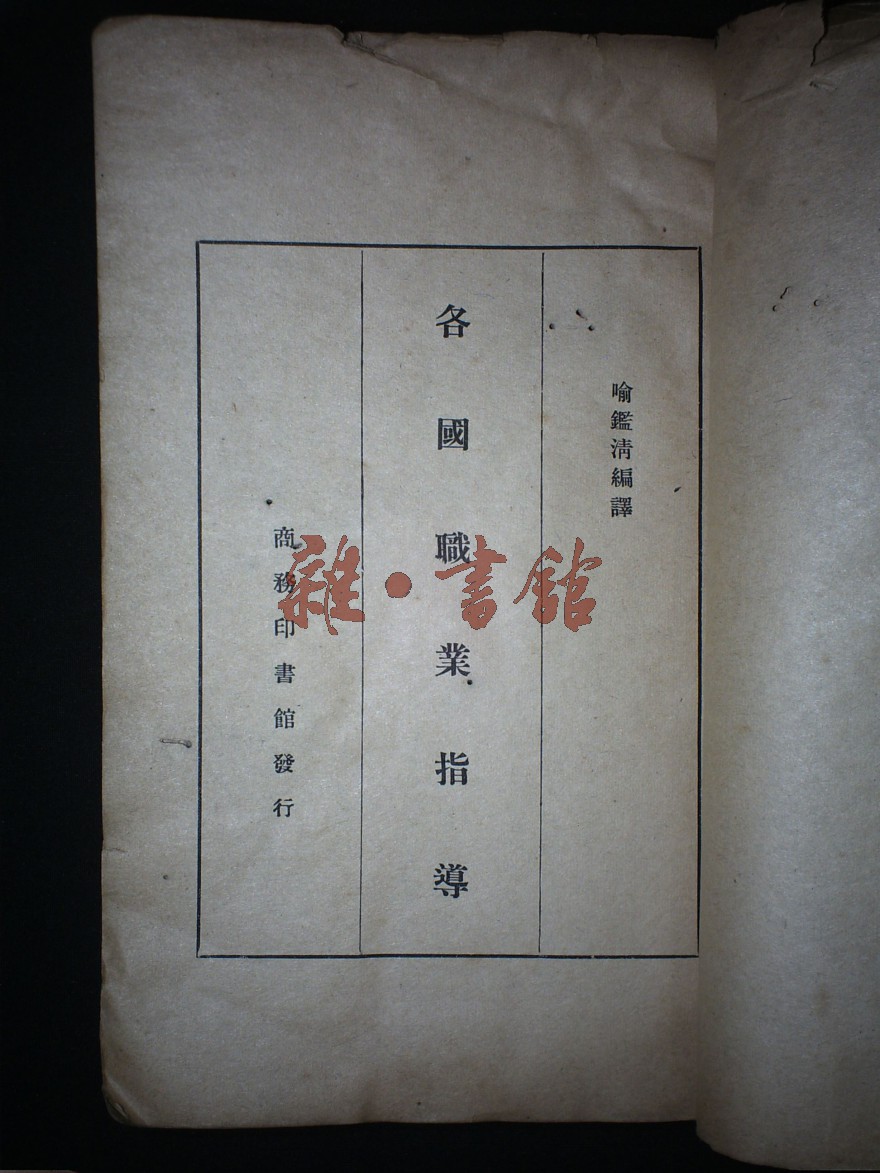 喻鑑淸編譯
各國職業指導
商務印書館發行
雜·書館